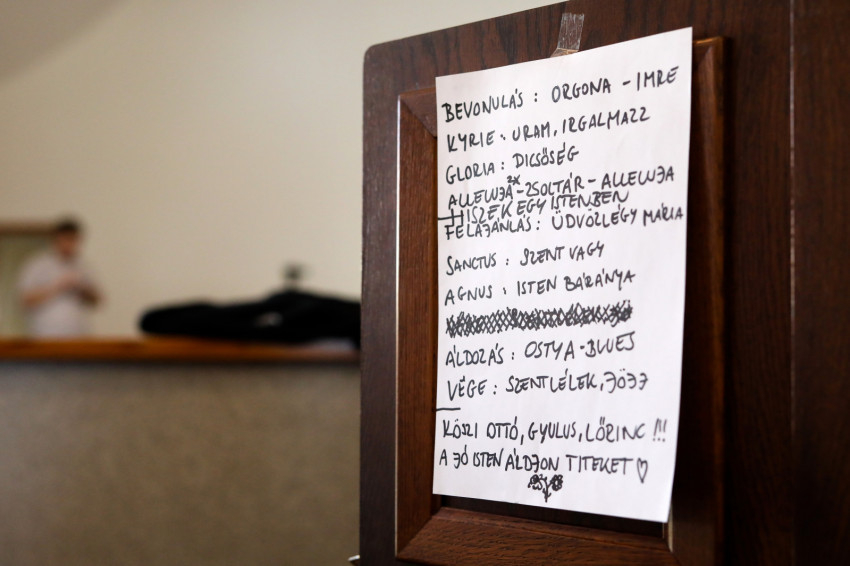 BEVONULÁS : ORGONA - IMRE
KYRIE : URAM, IRGALMAZZ
GLORIA : DICSŐSÉG
ALLELUJA 2X - ZSOLTÁR - ALLELUJA
HISZEK EGY ISTENBEN
FELAJÁNLÁS : ÜDVÖZLÉGY MÁRIA
SANCTUS : SZENT VAGY
AGNUS : ISTEN BÁRÁNYA
ÁLDOZÁS : OSTYA-BLUES
VÉGE : SZENTLÉLEK, JÖJJ
KÖSZI OTTÓ, GYULUS, LŐRINC !!!
A JÓ ISTEN ÁLDJON TITEKET ♡